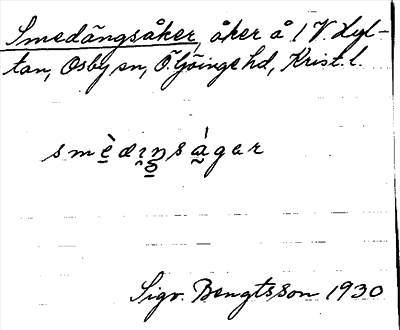 Smedängsåker, åker å 1 V. Hyl-
tan, Osby sn, Ö. Göinge hd, Krist. l.
smèdıŋságar
Sigv. Bengtsson 1930